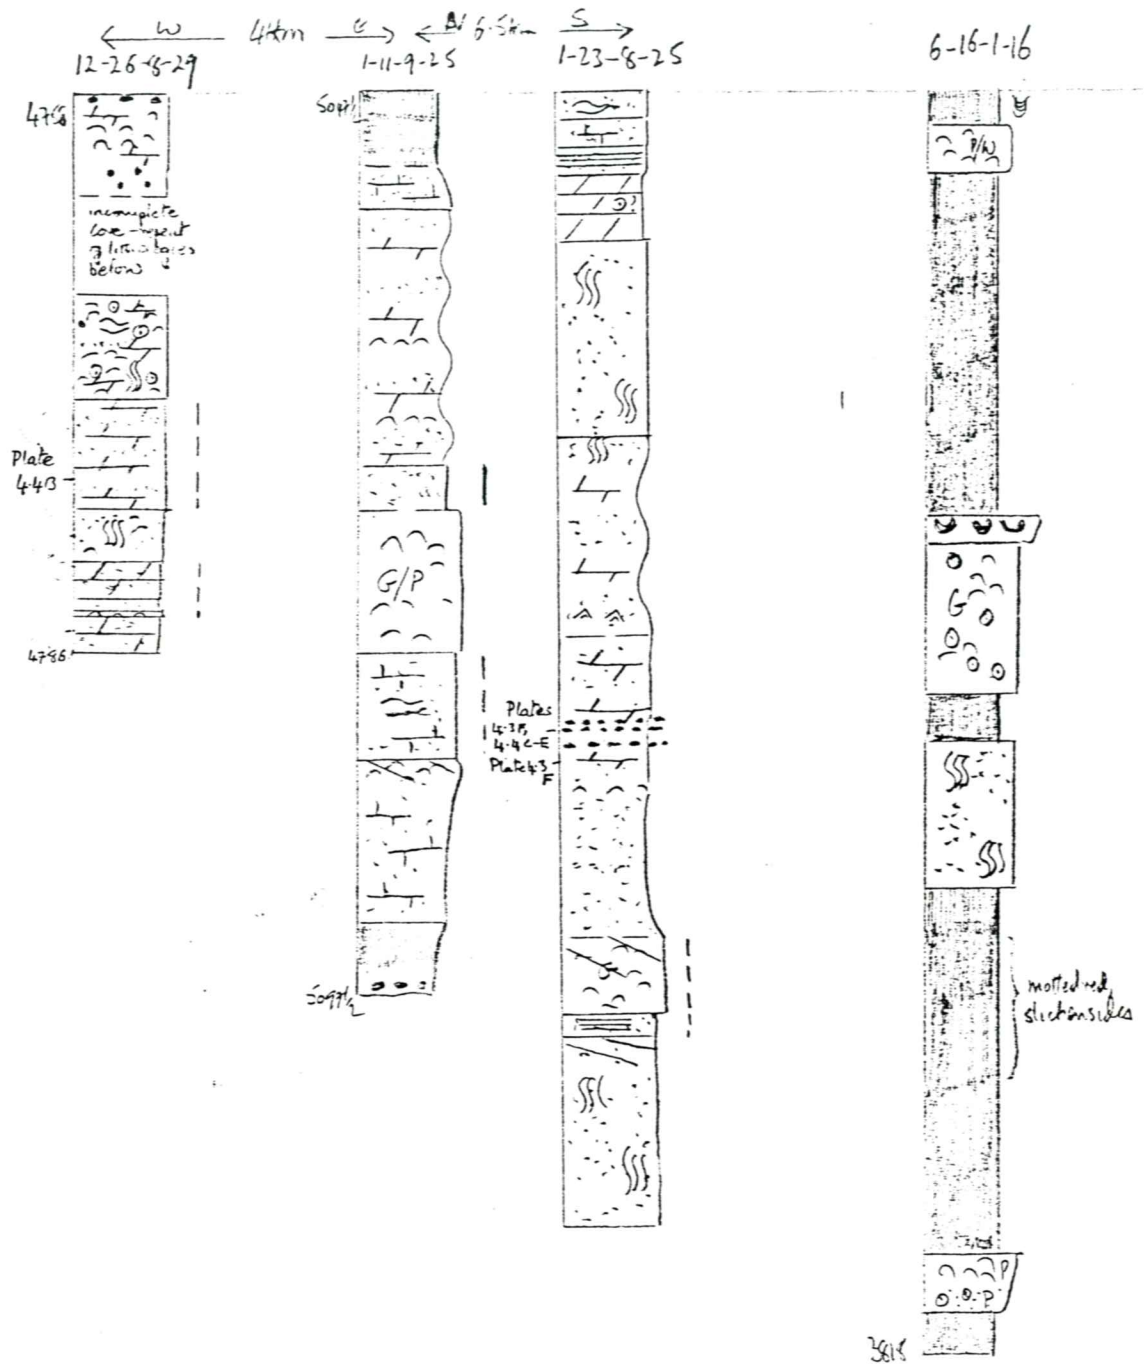 W 4Km E N 6.5Km S
12-26-8-29 1-11-9-25 1-23-8-25 6-16-1-16
P/W
incomplete
core - repeat
of lithologies
below
Plate
4.4B
G/P
G
4786
Plates
4.3B,
4.4C-E
Plate 4.3
F
G
5097½
mottled red,
slickensides
P
P
3818